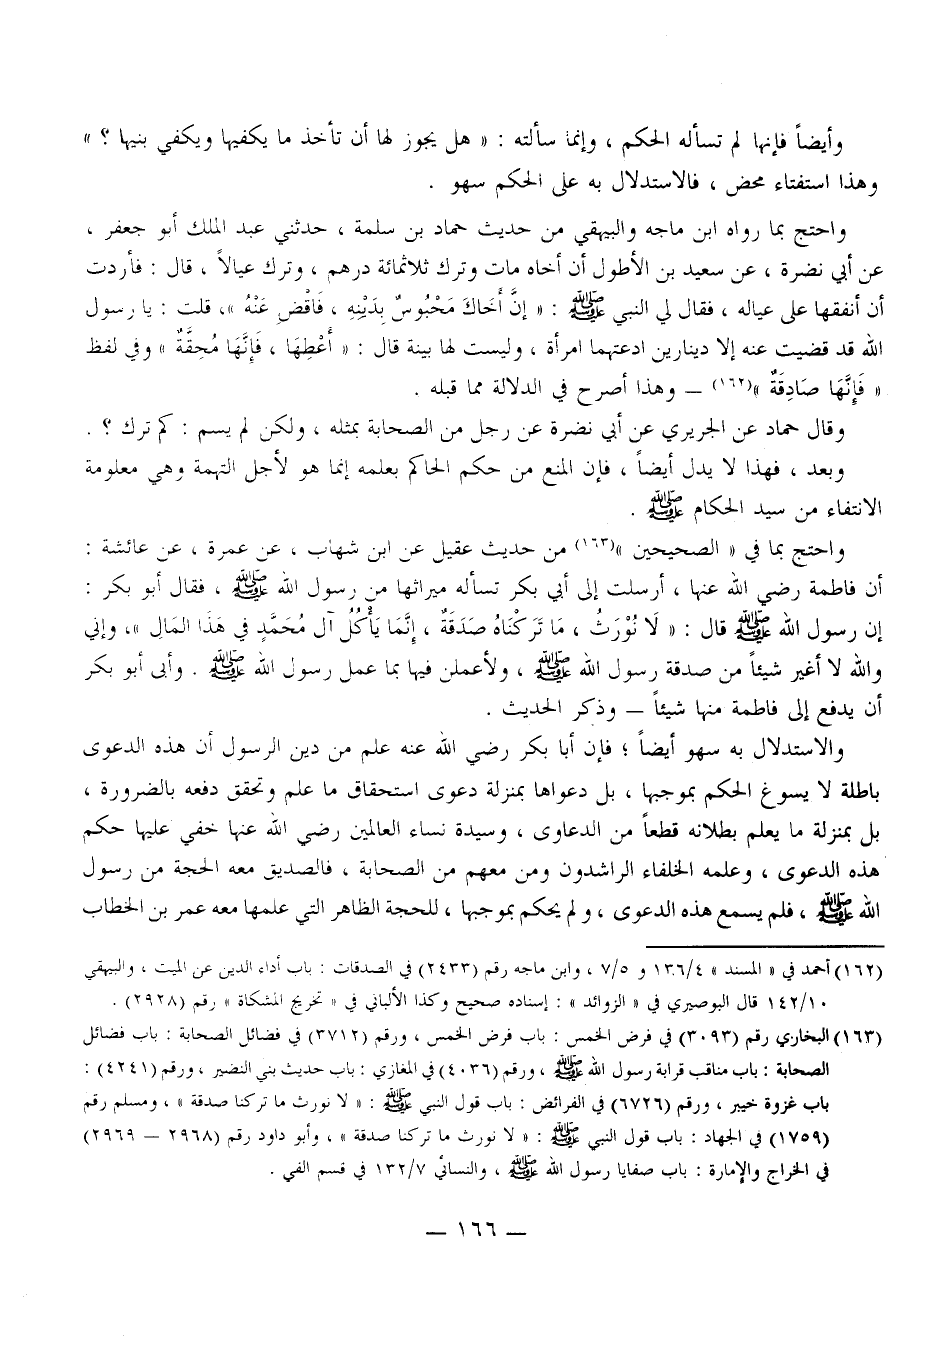 وأيضاً فإنها لم تسأله الحكم ، وإنما سألته : « هل يجوز لها أن تأخذ ما يكفيها ويكفي بنيها ؟ »
وهذا استفتاء محض ، فالاستدلال به على الحكم سهو .
واحتج بما رواه ابن ماجه والبيهقي من حديث حماد بن سلمة ، حدثني عبد الملك أبو جعفر ،
عن أبي نضرة ، عن سعيد بن الأطول أن أخاه مات وترك ثلاثمائة درهم ، وترك عيالاً ، قال : فأردت
أن أنفقها على عياله ، فقال لي النبي ﷺ : « إِنَّ أَخَاكَ مَحْبُوسٌ بِدَيْنِهِ ، فَاقْضِ عَنْهُ »، قلت : يا رسول
الله قد قضيت عنه إلا دينارين ادعتهما امرأة ، وليست لها بينة قال : « أَعْطِهَا ، فَإِنَّهَا مُحِقَّةٌ » وفي لفظ
« فَإِنَّهَا صَادِقَةٌ »(١٦٢) — وهذا أصرح في الدلالة مما قبله .
وقال حماد عن الجريري عن أبي نضرة عن رجل من الصحابة بمثله ، ولكن لم يسم : كم ترك ؟ .
وبعد ، فهذا لا يدل أيضاً ، فإن المنع من حكم الحاكم بعلمه إنما هو لأجل التهمة وهي معلومة
الانتفاء من سيد الحكام ﷺ .
واحتج بما في « الصحيحين »(١٦٣) من حديث عقيل عن ابن شهاب ، عن عمرة ، عن عائشة :
أن فاطمة رضي الله عنها ، أرسلت إلى أبي بكر تسأله ميراثها من رسول الله ﷺ ، فقال أبو بكر :
إن رسول الله ﷺ قال : « لَا نُوْرَثُ ، مَا تَرَكْنَاهُ صَدَقَةٌ ، إِنَّمَا يَأْكُلُ آل مُحَمَّدٍ فِي هَذَا المَالِ »، وإني
والله لا أغير شيئاً من صدقة رسول الله ﷺ ، ولأعملن فيها بما عمل رسول الله ﷺ . وأبى أبو بكر
أن يدفع إلى فاطمة منها شيئاً — وذكر الحديث .
والاستدلال به سهو أيضاً ؛ فإن أبا بكر رضي الله عنه علم من دين الرسول أن هذه الدعوى
باطلة لا يسوغ الحكم بموجبها ، بل دعواها بمنزلة دعوى استحقاق ما علم وتحقق دفعه بالضرورة ،
بل بمنزلة ما يعلم بطلانه قطعاً من الدعاوى ، وسيدة نساء العالمين رضي الله عنها خفي عليها حكم
هذه الدعوى ، وعلمه الخلفاء الراشدون ومن معهم من الصحابة ، فالصديق معه الحجة من رسول
الله ﷺ ، فلم يسمع هذه الدعوى ، ولم يحكم بموجبها ، للحجة الظاهر التي علمها معه عمر بن الخطاب
(١٦٢) أحمد في « المسند » ١٣٦/٤ و ٧/٥ ، وابن ماجه رقم (٢٤٣٣) في الصدقات : باب أداء الدين عن الميت ، والبيهقي
١٤٢/١٠ قال البوصيري في « الزوائد » : إسناده صحيح وكذا الألباني في « تخريج المشكاة » رقم (٢٩٢٨) .
(١٦٣) البخاري رقم (٣٠٩٣) في فرض الخمس : باب فرض الخمس ، ورقم (٣٧١٢) في فضائل الصحابة : باب فضائل
الصحابة : باب مناقب قرابة رسول الله ﷺ ، ورقم (٤٠٣٦) في المغازي : باب حديث بني النضير ، ورقم (٤٢٤١) :
باب غزوة خيبر ، ورقم (٦٧٢٦) في الفرائض : باب قول النبي ﷺ : « لا نورث ما تركنا صدقة » ، ومسلم رقم
(١٧٥٩) في الجهاد : باب قول النبي ﷺ : « لا نورث ما تركنا صدقة » ، وأبو داود رقم (٢٩٦٨ — ٢٩٦٩)
في الخراج والإمارة : باب صفايا رسول الله ﷺ ، والنسائي ١٣٢/٧ في قسم الفي .
— ١٦٦ —